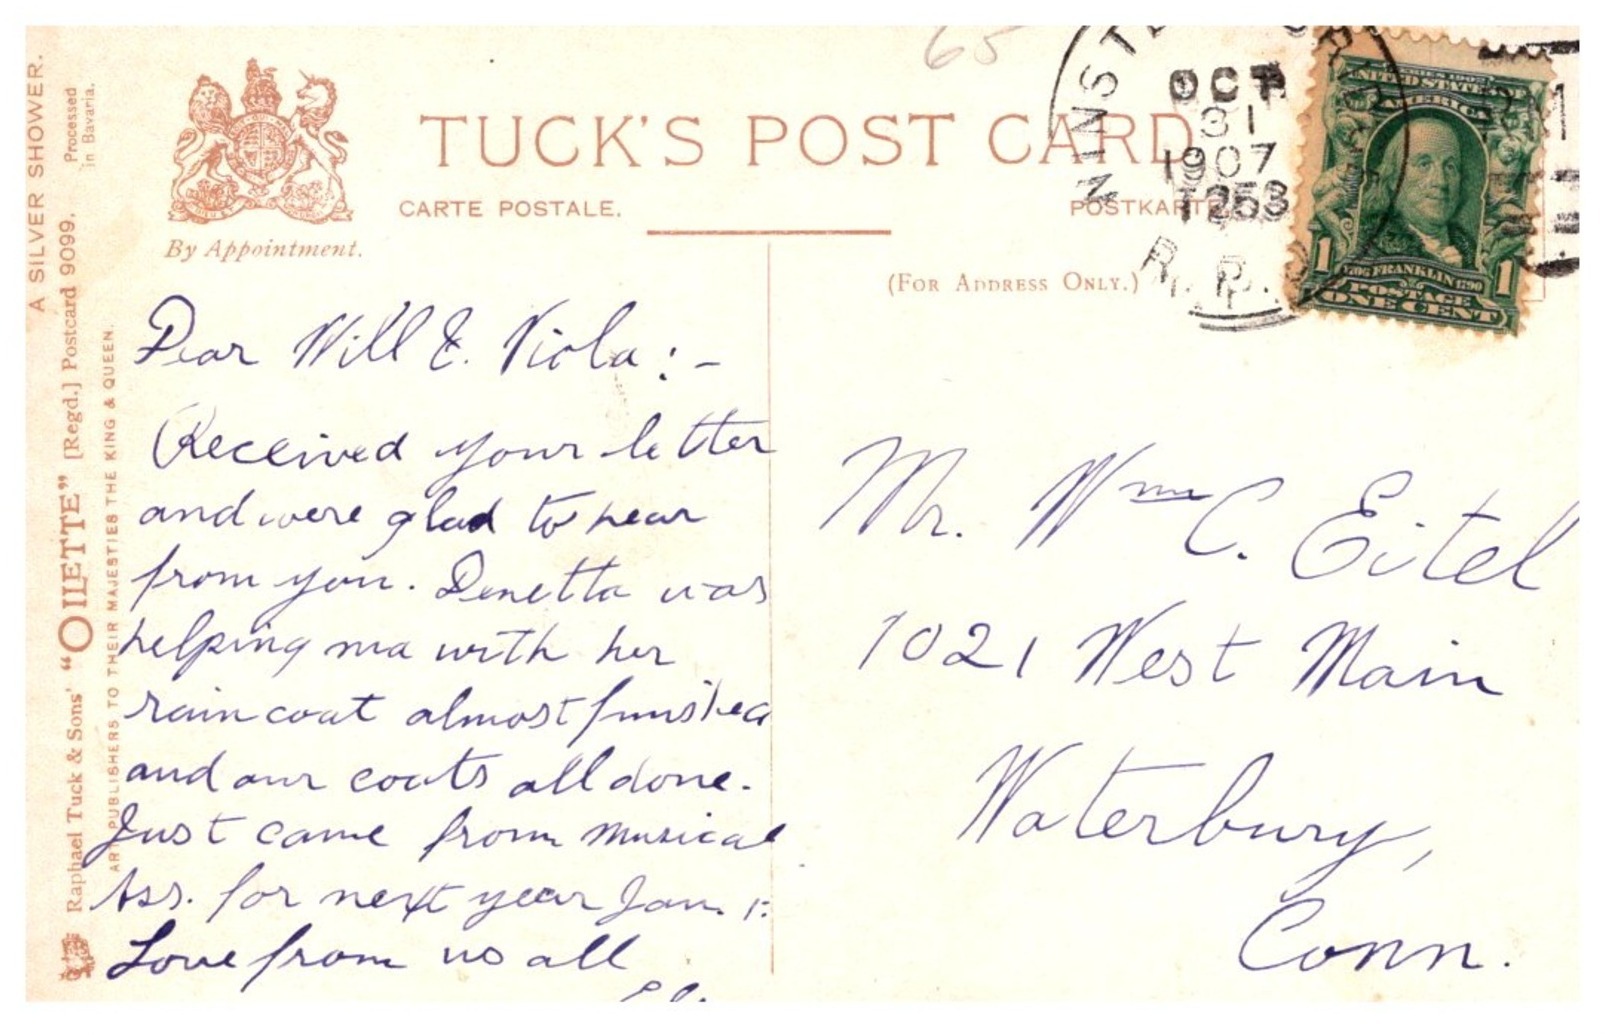 65
TUCK'S POST CARD
CARTE POSTALE.
POSTKARTE
By Appointment.
(For Address Only.)
A SILVER SHOWER.
Processed
in Bavaria.
Raphael Tuck & Sons' "OILETTE" [Regd.] Postcard 9099.
ART PUBLISHERS TO THEIR MAJESTIES THE KING & QUEEN.
OCT
31
1907
T253
R.P.O.
SERIES 1902
UNITED STATES OF
AMERICA
1706 FRANKLIN 1790
1 1
POSTAGE
ONE CENT
Dear Will & Viola :-
Received your letter
and were glad to hear
from you. Denetta was
helping ma with her
rain coat almost finished
and our coats all done.
Just came from Musical
Ass. for next year Jan. 1.
Love from us all
Mr. Wm C. Eitel
1021 West Main
Waterbury,
Conn.